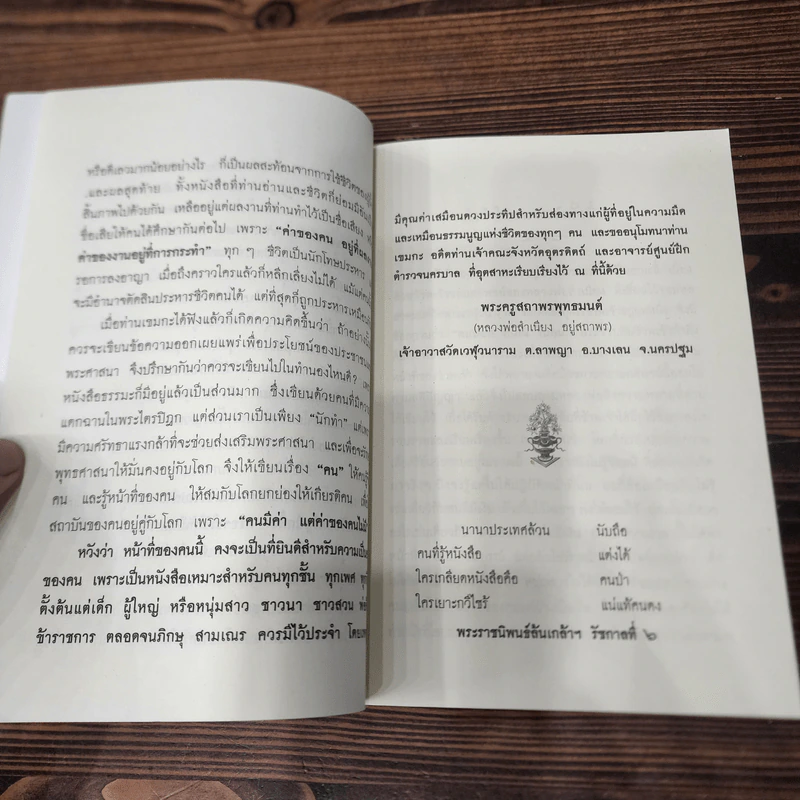 หรือดีเลวมากน้อยอย่างไร ก็เป็นผลสะท้อนจากการใช้ชีวิตของ
และผลสุดท้าย ทั้งหนังสือที่ท่านอ่านและชีวิตก็ย่อมมี
สิ้นภาพไปด้วยกัน เหลืออยู่แต่ผลงานที่ท่านทำไว้เป็นชื่อเสียง
ชื่อเสียให้คนได้ศึกษากันต่อไป เพราะ “ค่าของคน อยู่ที่ผล
ค่าของงานอยู่ที่การกระทำ” ทุก ๆ ชีวิตเป็นนักโทษประหาร
รอการลงอาญา เมื่อถึงคราวใครแล้วก็หลีกเลี่ยงไม่ได้ แม้แต่
จะมีอำนาจตัดสินประหารชีวิตคนได้ แต่ที่สุดก็ถูกประหารเหมือน
เมื่อท่านเขมกะได้ฟังแล้วก็เกิดความคิดขึ้นว่า ถ้าอย่างนั้น
ควรจะเขียนข้อความออกเผยแพร่เพื่อประโยชน์ของประชาชน
พระศาสนา จึงปรึกษากันว่าควรจะเขียนไปในทำนองไหนดี?
หนังสือธรรมะก็มีอยู่แล้วเป็นส่วนมาก ซึ่งเขียนด้วยคนที่มีความ
แตกฉานในพระไตรปิฎก แต่ส่วนเราเป็นเพียง “นักทำ” แต่
มีความศรัทธาแรงกล้าที่จะช่วยส่งเสริมพระศาสนา และเพื่อจะ
พุทธศาสนาให้มั่นคงอยู่กับโลก จึงให้เขียนเรื่อง “คน” ให้คน
คน และรู้หน้าที่ของคน ให้สมกับโลกยกย่องให้เกียรติคน
สถาบันของคนอยู่คู่กับโลก เพราะ “คนมีค่า แต่ค่าของคน
หวังว่า หน้าที่ของคนนี้ คงจะเป็นที่ยินดีสำหรับความเป็น
ของคน เพราะเป็นหนังสือเหมาะสำหรับคนทุกชั้น ทุกเพศ
ตั้งต้นแต่เด็ก ผู้ใหญ่ หรือหนุ่มสาว ชาวนา ชาวสวน
ข้าราชการ ตลอดจนภิกษุ สามเณร ควรมีไว้ประจำ
มีคุณค่าเสมือนดวงประทีปสำหรับส่องทางแก่ผู้ที่อยู่ในความมืด
และเหมือนธรรมนูญแห่งชีวิตของทุกๆ คน และขออนุโมทนาท่าน
เขมกะ อดีตท่านเจ้าคณะจังหวัดอุตรดิตถ์ และอาจารย์ศูนย์ฝึก
ตำรวจนครบาล ที่อุตสาหะเรียบเรียงไว้ ณ ที่นี้ด้วย
พระครูสถาพรพุทธมนต์
(หลวงพ่อสำเนียง อยู่สถาพร)
เจ้าอาวาสวัดเวฬุวนาราม ต.ลำพญา อ.บางเลน จ.นครปฐม
นานาประเทศล้วน นับถือ
คนที่รู้หนังสือ แต่งได้
ใครเกลียดหนังสือคือ คนป่า
ใครเยาะกวีไซร้ แน่แท้คนดง
พระราชนิพนธ์ล้นเกล้าฯ รัชกาลที่ ๖